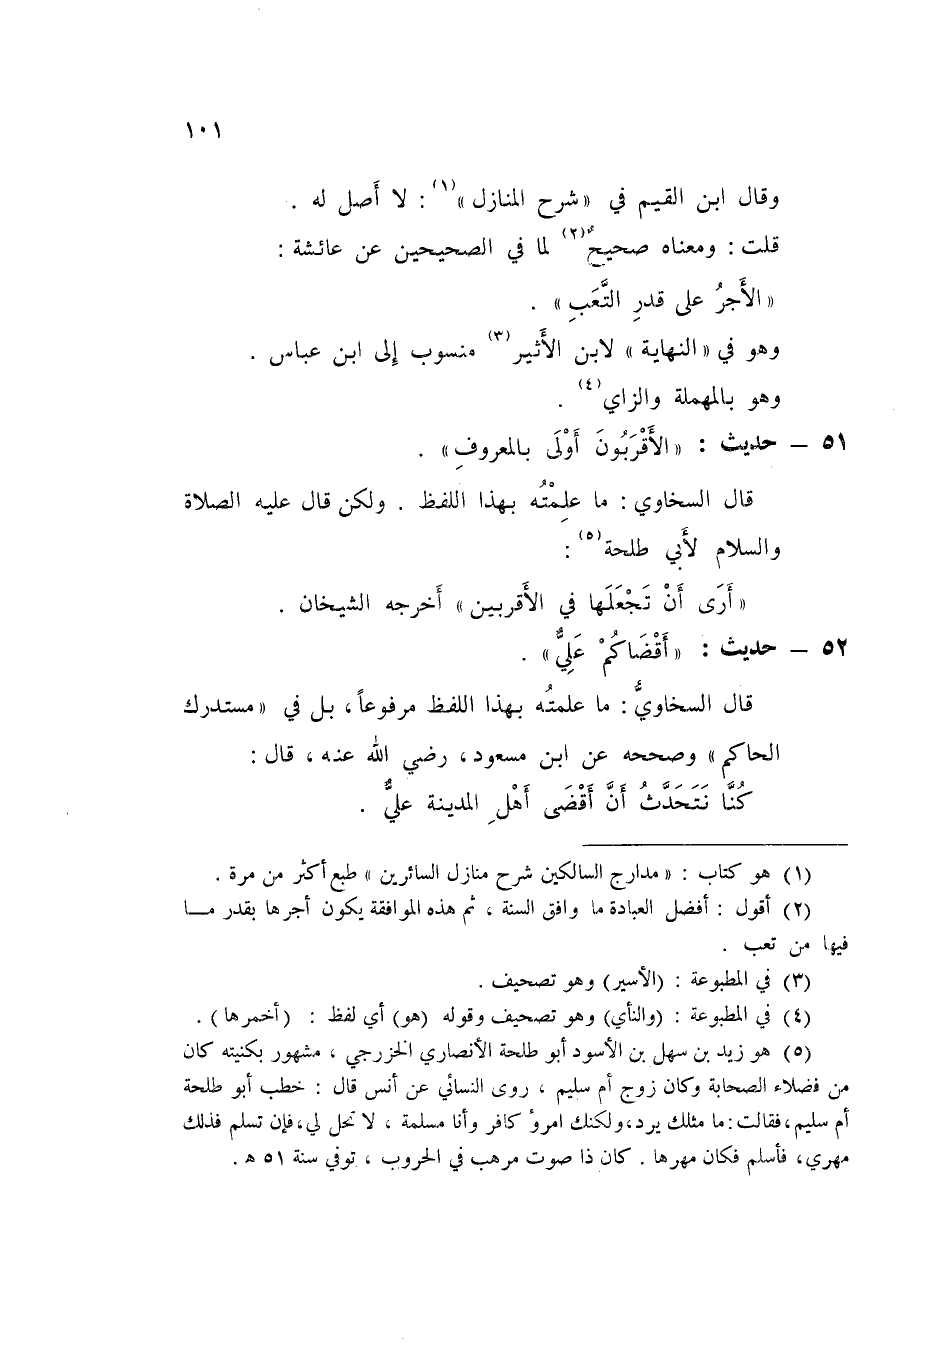 ١٠١
وقال ابن القيم في «شرح المنازل»(١) : لا أَصل له .
قلت : ومعناه صحيحٌ(٢) لما في الصحيحين عن عائشة :
«الأَجرُ على قدرِ التَّعَبِ» .
وهو في «النهاية» لابن الأَثير(٣) منسوب إلى ابن عباس .
وهو بالمهملة والزاي(٤) .
٥١ – حديث : «الأَقْرَبُونَ أَوْلَى بالمعروفِ» .
قال السخاوي : ما علِمْتُه بهذا اللفظ . ولكن قال عليه الصلاة
والسلام لأَبي طلحة(٥) :
«أَرَى أَنْ تَجْعَلَها في الأَقربين» أَخرجه الشيخان .
٥٢ – حديث : «أَقْضَاكُمْ عَلِيٌّ» .
قال السخاويُّ : ما علمتُه بهذا اللفظ مرفوعاً ، بل في «مستدرك
الحاكم» وصححه عن ابن مسعود ، رضي الله عنه ، قال :
كُنَّا نَتَحَدَّثُ أَنَّ أَقْضَى أَهْلِ المدينة عليٌّ .
(١) هو كتاب : «مدارج السالكين شرح منازل السائرين» طبع أكثر من مرة .
(٢) أقول : أفضل العبادة ما وافق السنة ، ثم هذه الموافقة يكون أجرها بقدر مـــا
فيها من تعب .
(٣) في المطبوعة : (الأسير) وهو تصحيف .
(٤) في المطبوعة : (والنأي) وهو تصحيف وقوله (هو) أي لفظ : (أحمزها) .
(٥) هو زيد بن سهل بن الأسود أبو طلحة الأنصاري الخزرجي ، مشهور بكنيته كان
من فضلاء الصحابة وكان زوج أم سليم ، روى النسائي عن أنس قال : خطب أبو طلحة
أم سليم ، فقالت : ما مثلك يرد ، ولكنك امرؤ كافر وأنا مسلمة ، لا تحل لي ، فإن تسلم فذلك
مهري ، فأسلم فكان مهرها . كان ذا صوت مرهب في الحروب ، توفي سنة ٥١ ه .